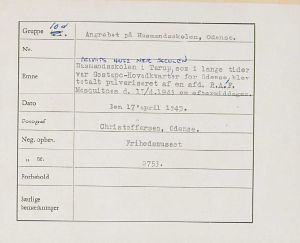 Gruppe 10d Angrebet på Husmandsskolen, Odense.
Nr.
PRIVATE HUSE NÆR SKOLEN
Husmandsskolen i Tarup, som i lange tider
var Gestapo-Hovedkvarter for Odense, blev
Emne totalt pulveriseret af en afd. R.A.F.
Mosquitoes d. 17/4.1945 om eftermiddagen.
Dato Den 17'april 1945.
Fotograf Christoffersen, Odense.
Neg. opbev. Frihedsmuseet
„ nr. 2753.
Forbehold
Særlige
bemærkninger